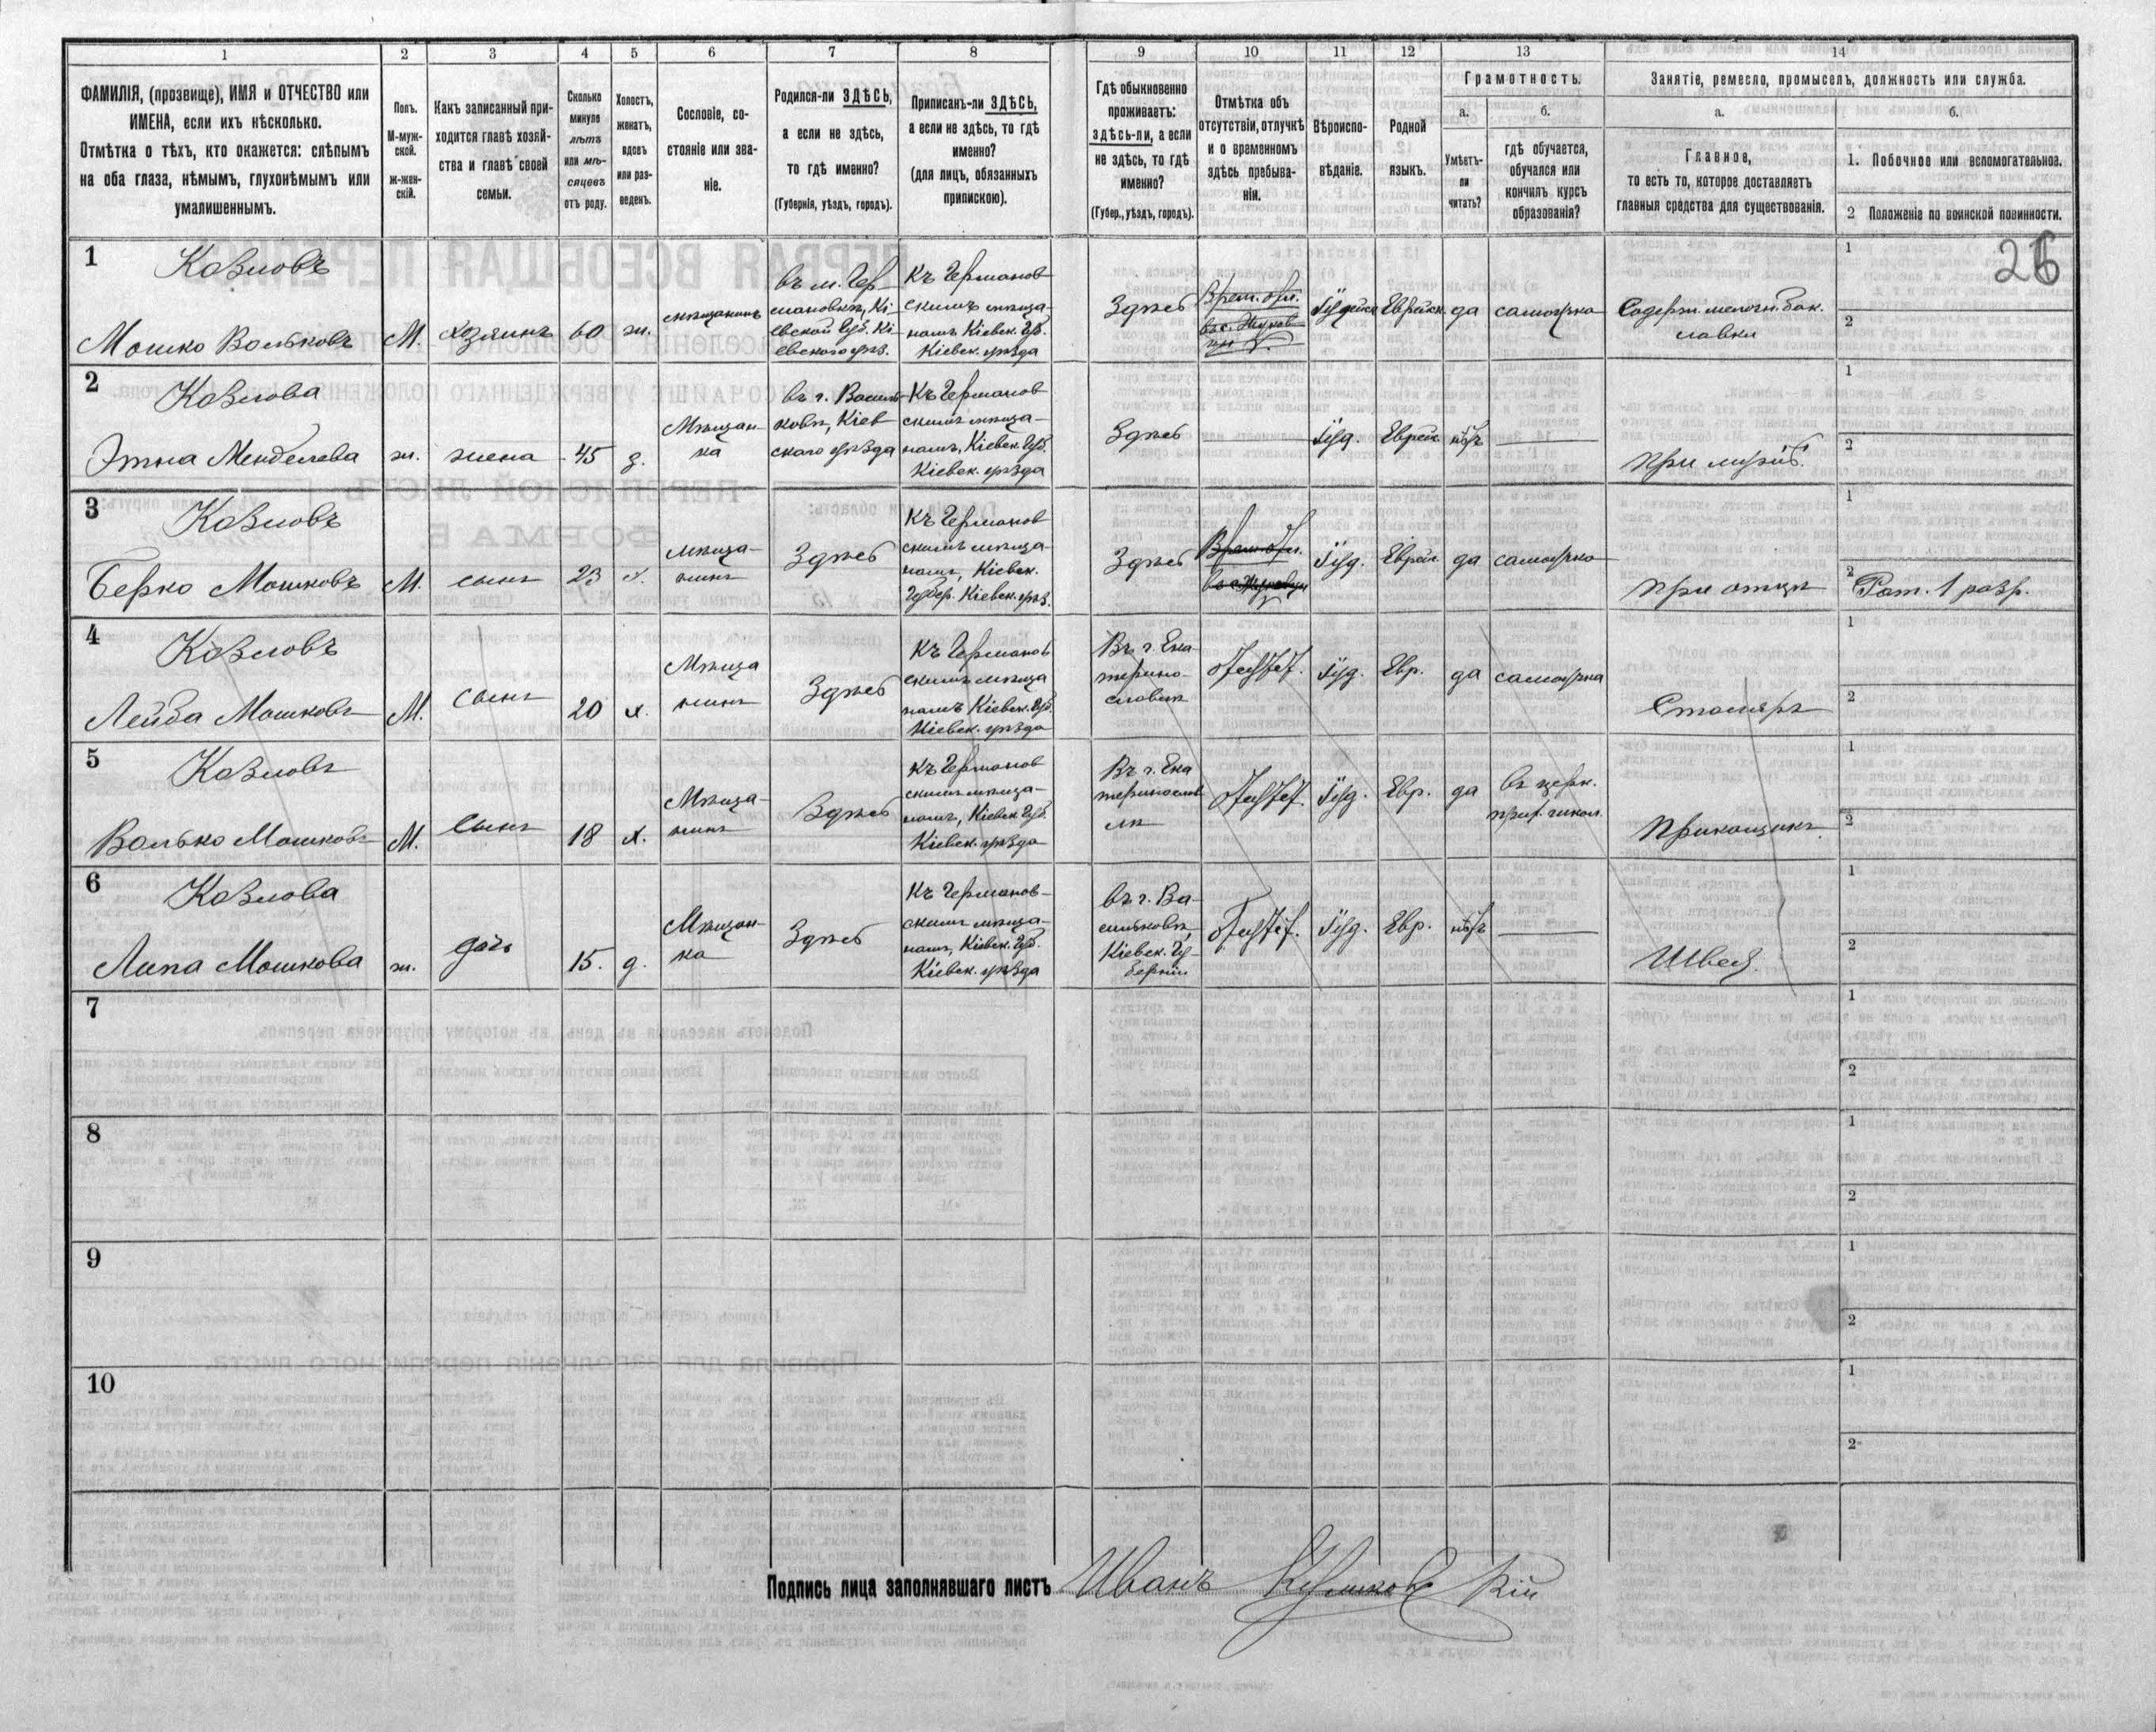 1
2
3
4
5
6
7
8
9
10
11
12
13
14
ФАМИЛІЯ, (прозвище), ИМЯ и ОТЧЕСТВО или
ИМЕНА, если ихъ нѣсколько.
Отмѣтка о тѣхъ, кто окажется: слѣпымъ
на оба глаза, нѣмымъ, глухонѣмымъ или
умалишеннымъ.
Полъ.
М-муж-
ской.
ж-жен-
скій.
Какъ записанный при-
ходится главѣ хозяй-
ства и главѣ своей
семьи.
Сколько
минуло
лѣтъ
или мѣ-
сяцевъ
отъ роду.
Холостъ,
женатъ,
вдовъ
или раз-
веденъ.
Сословіе, со-
стояніе или зва-
ніе.
Родился-ли ЗДѢСЬ,
а если не здѣсь,
то гдѣ именно?
(Губернія, уѣздъ, городъ).
Приписанъ-ли ЗДѢСЬ,
а если не здѣсь, то гдѣ
именно?
(для лицъ, обязанныхъ
припискою).
Гдѣ обыкновенно
проживаетъ:
здѣсь-ли, а если
не здѣсь, то гдѣ
именно?
(Губер., уѣздъ, городъ).
Отмѣтка объ
отсутствіи, отлучкѣ
и о временномъ
здѣсь пребыва-
ніи.
Вѣроиспо-
вѣданіе.
Родной
языкъ.
Грамотность.
а.
Умѣетъ-
ли
читать?
б.
гдѣ обучается,
обучался или
кончилъ курсъ
образованія?
Занятіе, ремесло, промыселъ, должность или служба.
а.
Главное,
то есть то, которое доставляетъ
главныя средства для существованія.
б.
1. Побочное или вспомогательное.
2 Положеніе по воинской повинности.
26
1
Козловъ
Мошко Вольковъ
М.
хозяинъ
60
ж.
мѣщанинъ
въ м. Гер-
мановкѣ, Кі-
евской Губ. Кі-
евского уѣз.
Къ Германов
скимъ мѣща-
намъ Кіевск. Губ.
Кіевск. уѣзда
Здѣсь
Врем. отл.
Іудейск
Еврейск.
да
самоучка
Содерж. мелочн. бак.
лавки
1
2
2
Козлова
Этна Менделева
ж.
жена
45
з.
Мѣщан-
ка
въ г. Василь-
ковѣ, Кіев
скаго уѣзда
Къ Германов
скимъ мѣща-
намъ, Кіевск. Губ.
Кіевск. уѣзда
Здѣсь
Іуд.
Еврейс.
нѣтъ
При мужѣ.
1
2
3
Козловъ
Берко Мошковъ
М.
сынъ
23
х.
мѣща-
нинъ
Здѣсь
Къ Германов
скимъ мѣща
намъ, Кіевск.
Губер. Кіевск. уѣз.
Здѣсь
Врем. отл.
Іуд.
Еврейс.
да
самоучка
При отцѣ
1
2
Рат. 1 разр.
4
Козловъ
Лейба Мошковъ
М.
сынъ
20
х.
Мѣща
нинъ
Здѣсь
Къ Германов
скимъ мѣща
намъ Кіевск. Губ.
Кіевск. уѣзда
Въ г. Ека-
терино-
славѣ
Іуд.
Евр.
да
самоучка
Столяръ
1
2
5
Козловъ
Волько Мошковъ
М.
Сынъ
18
х.
Мѣща-
нинъ
Здѣсь
Къ Германов
скимъ мѣща-
намъ, Кіевск. Губ.
Кіевск. уѣзда
Въ г. Ека
теринослав
лѣ
Іуд.
Евр.
да
въ церк.
прих. школ.
Прикащикъ.
1
2
6
Козлова
Липа Мошкова
ж.
дочь
15.
д.
Мѣщан-
ка
Здѣсь
Къ Германов-
скимъ мѣща-
намъ, Кіевск. Губ.
Кіевск. уѣзда
въ г. Ва-
сильковѣ,
Кіевск. Гу-
берніи
Іуд.
Евр.
нѣтъ
Швея.
1
2
7
1
2
8
1
2
9
1
2
10
1
2
Подпись лица заполнявшаго листъ Иванъ